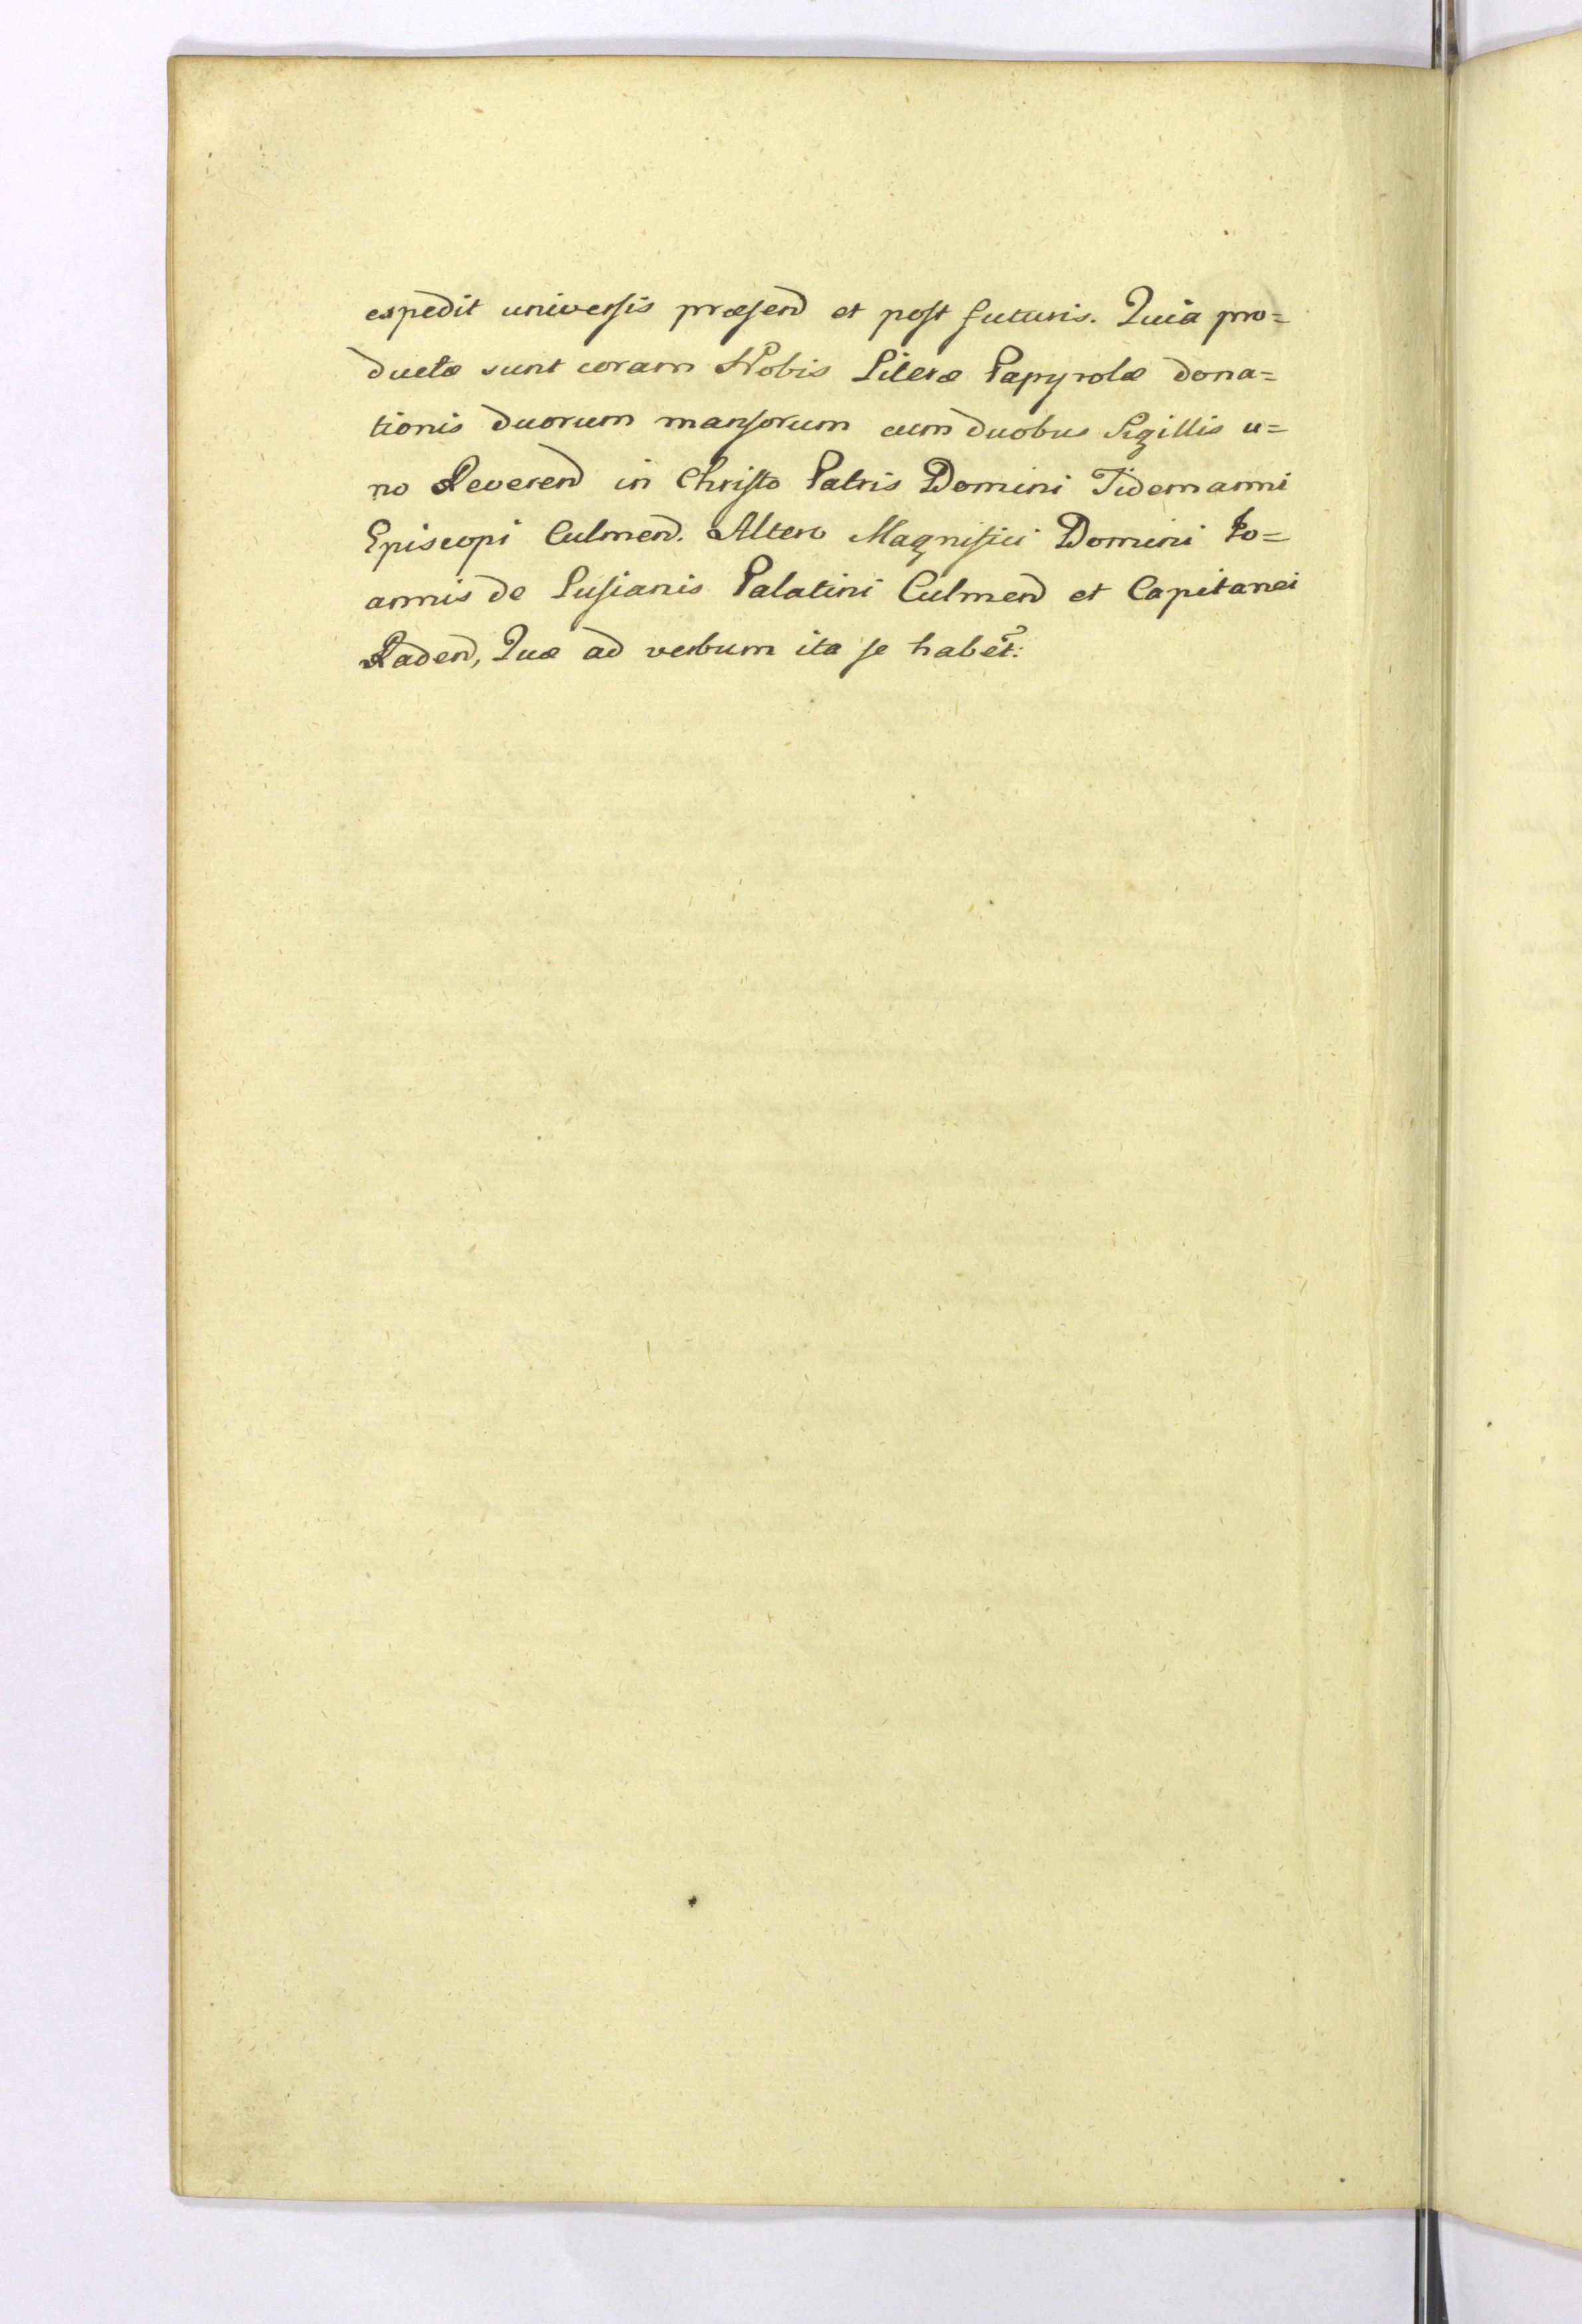 expedit universis præsend et post futuris. Quia pro=
ductæ sunt coram Nobis Literæ Papyrolæ dona=
tionis duorum mansorum cum duobus Sigillis u=
no Reverend in Christo Patris Domini Tidemanni
Episcopi Culmend. Altero Magnifici Domini Jo=
annis de Lusianis Palatini Culmend et Capitanei
Radend, Quæ ad verbum ita se habet: